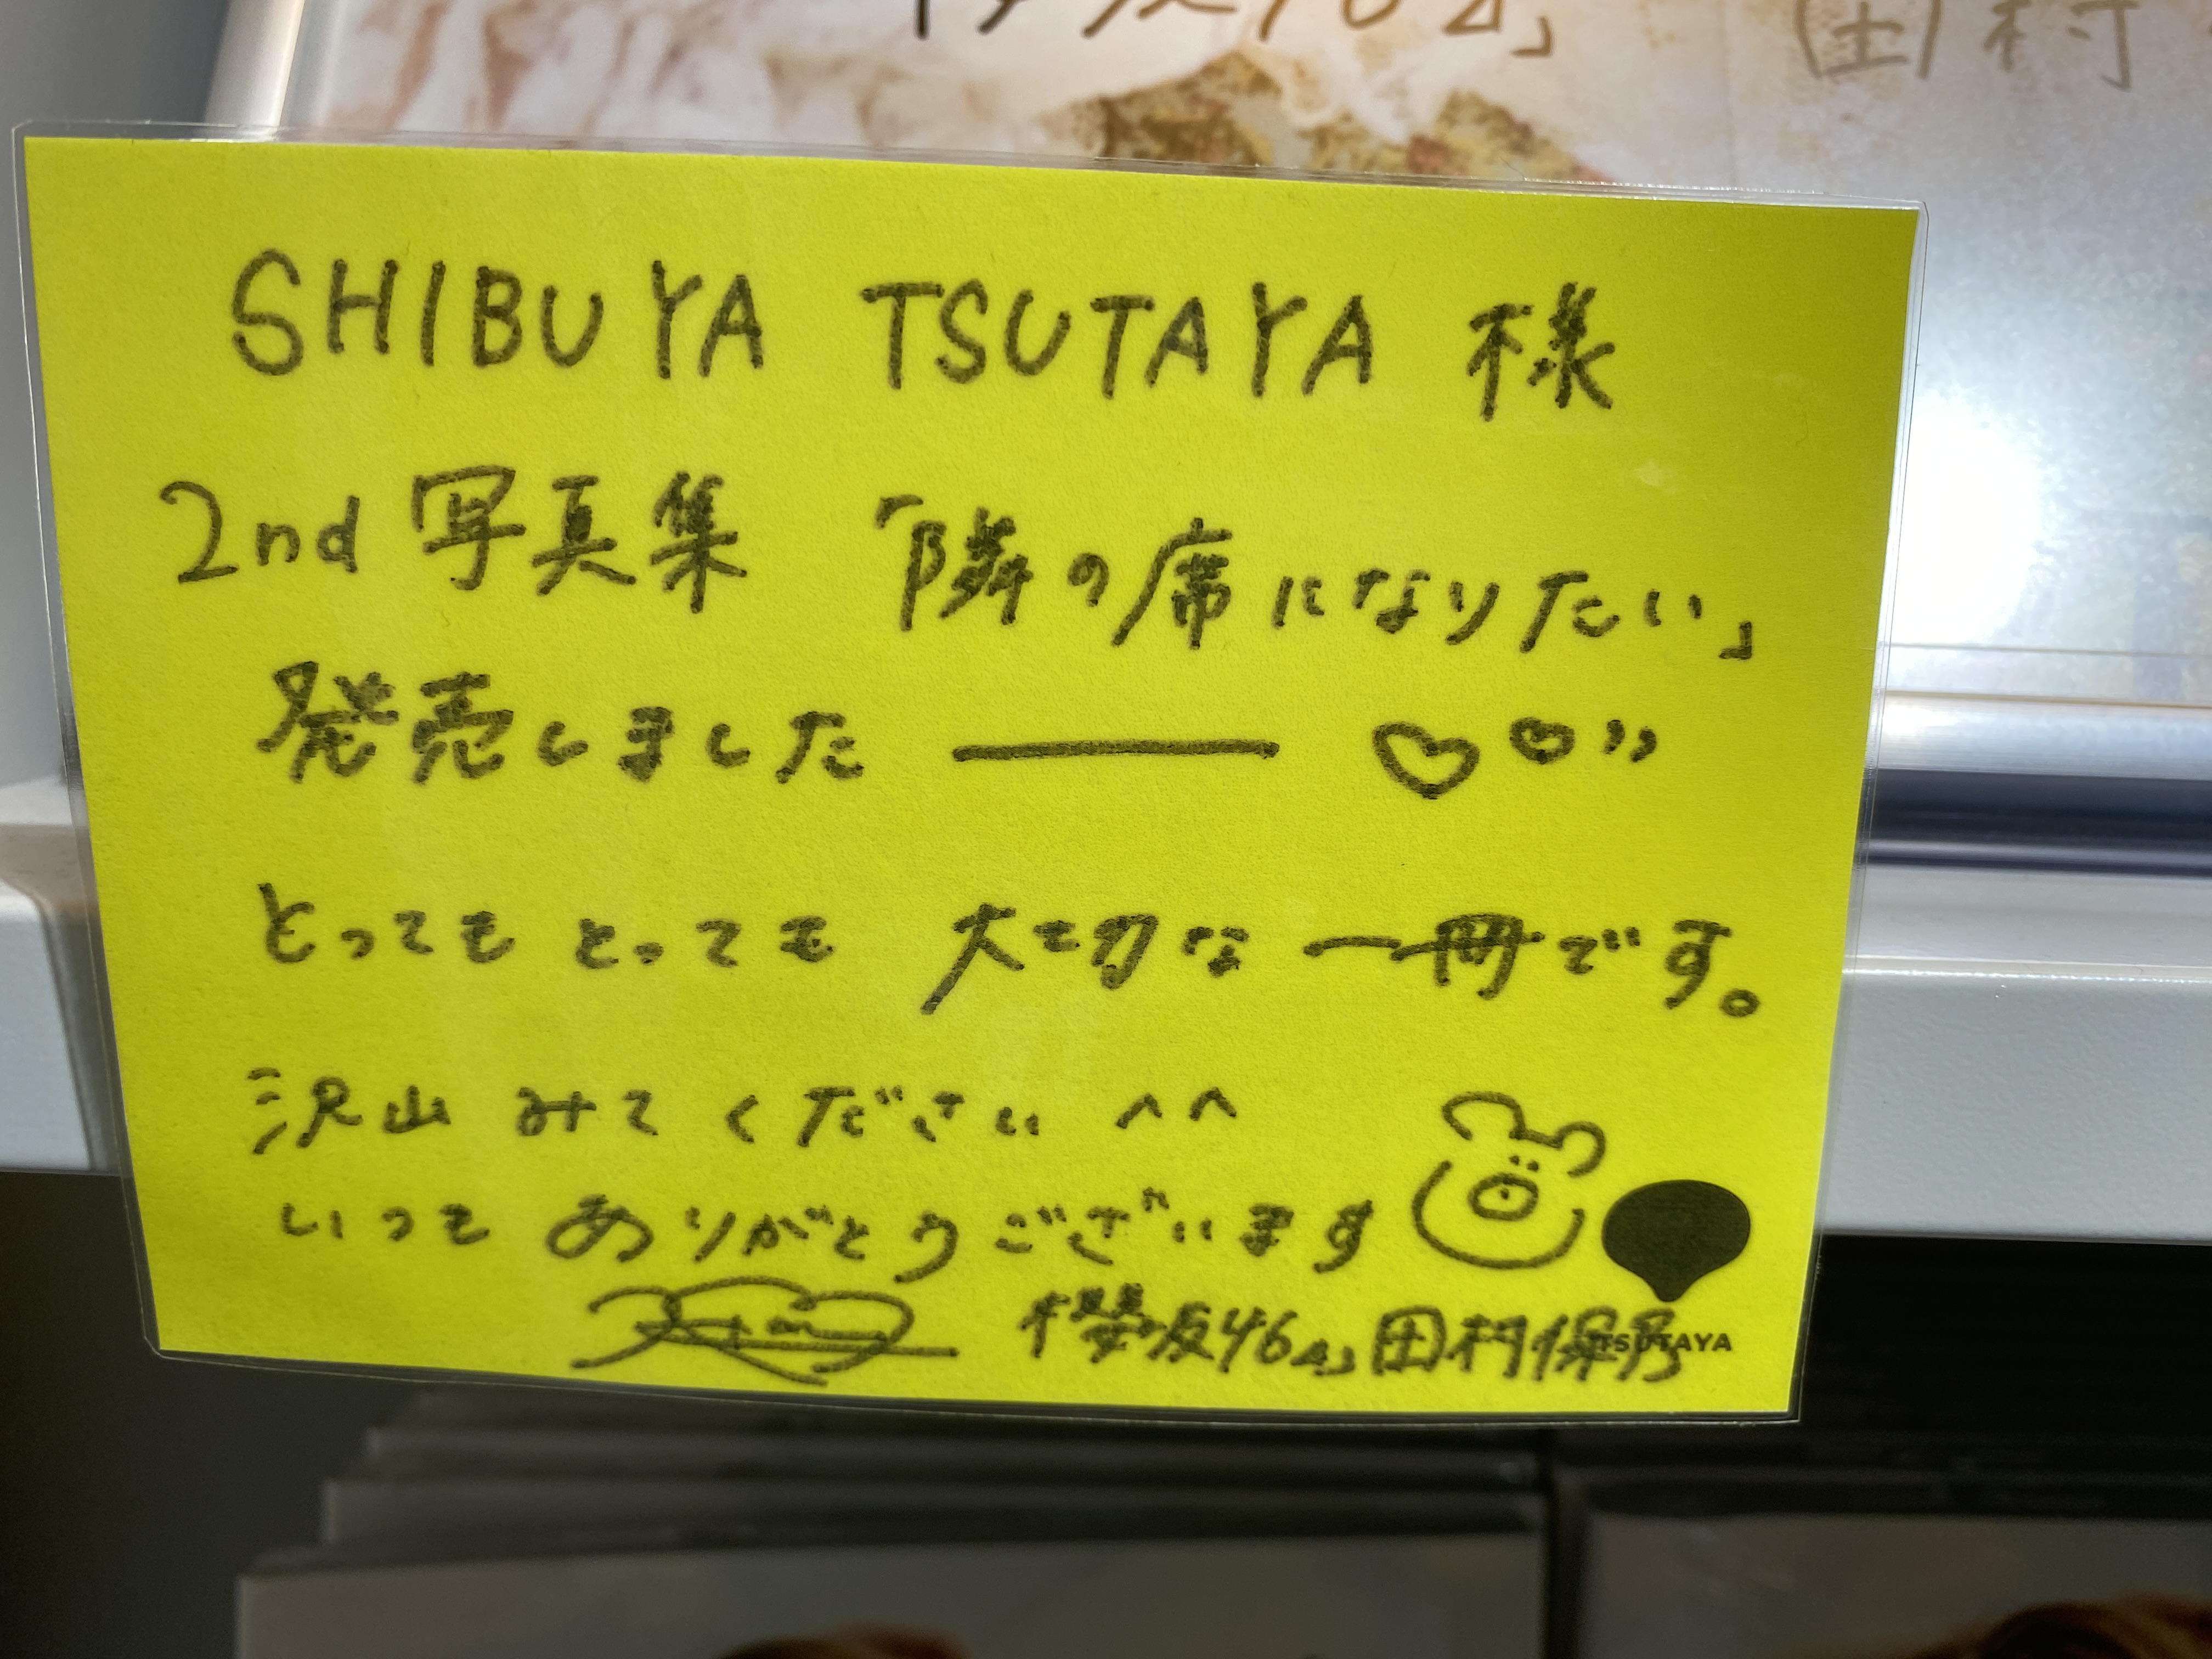 「櫻坂46」 田村
SHIBUYA TSUTAYA 様
2nd 写真集 「隣の席になりたい」
発売しました ー ♡♡〃
とってもとっても 大切な一冊です。
沢山 みてください ^^
いつも ありがとうございます
櫻坂46 田村保乃
TSUTAYA